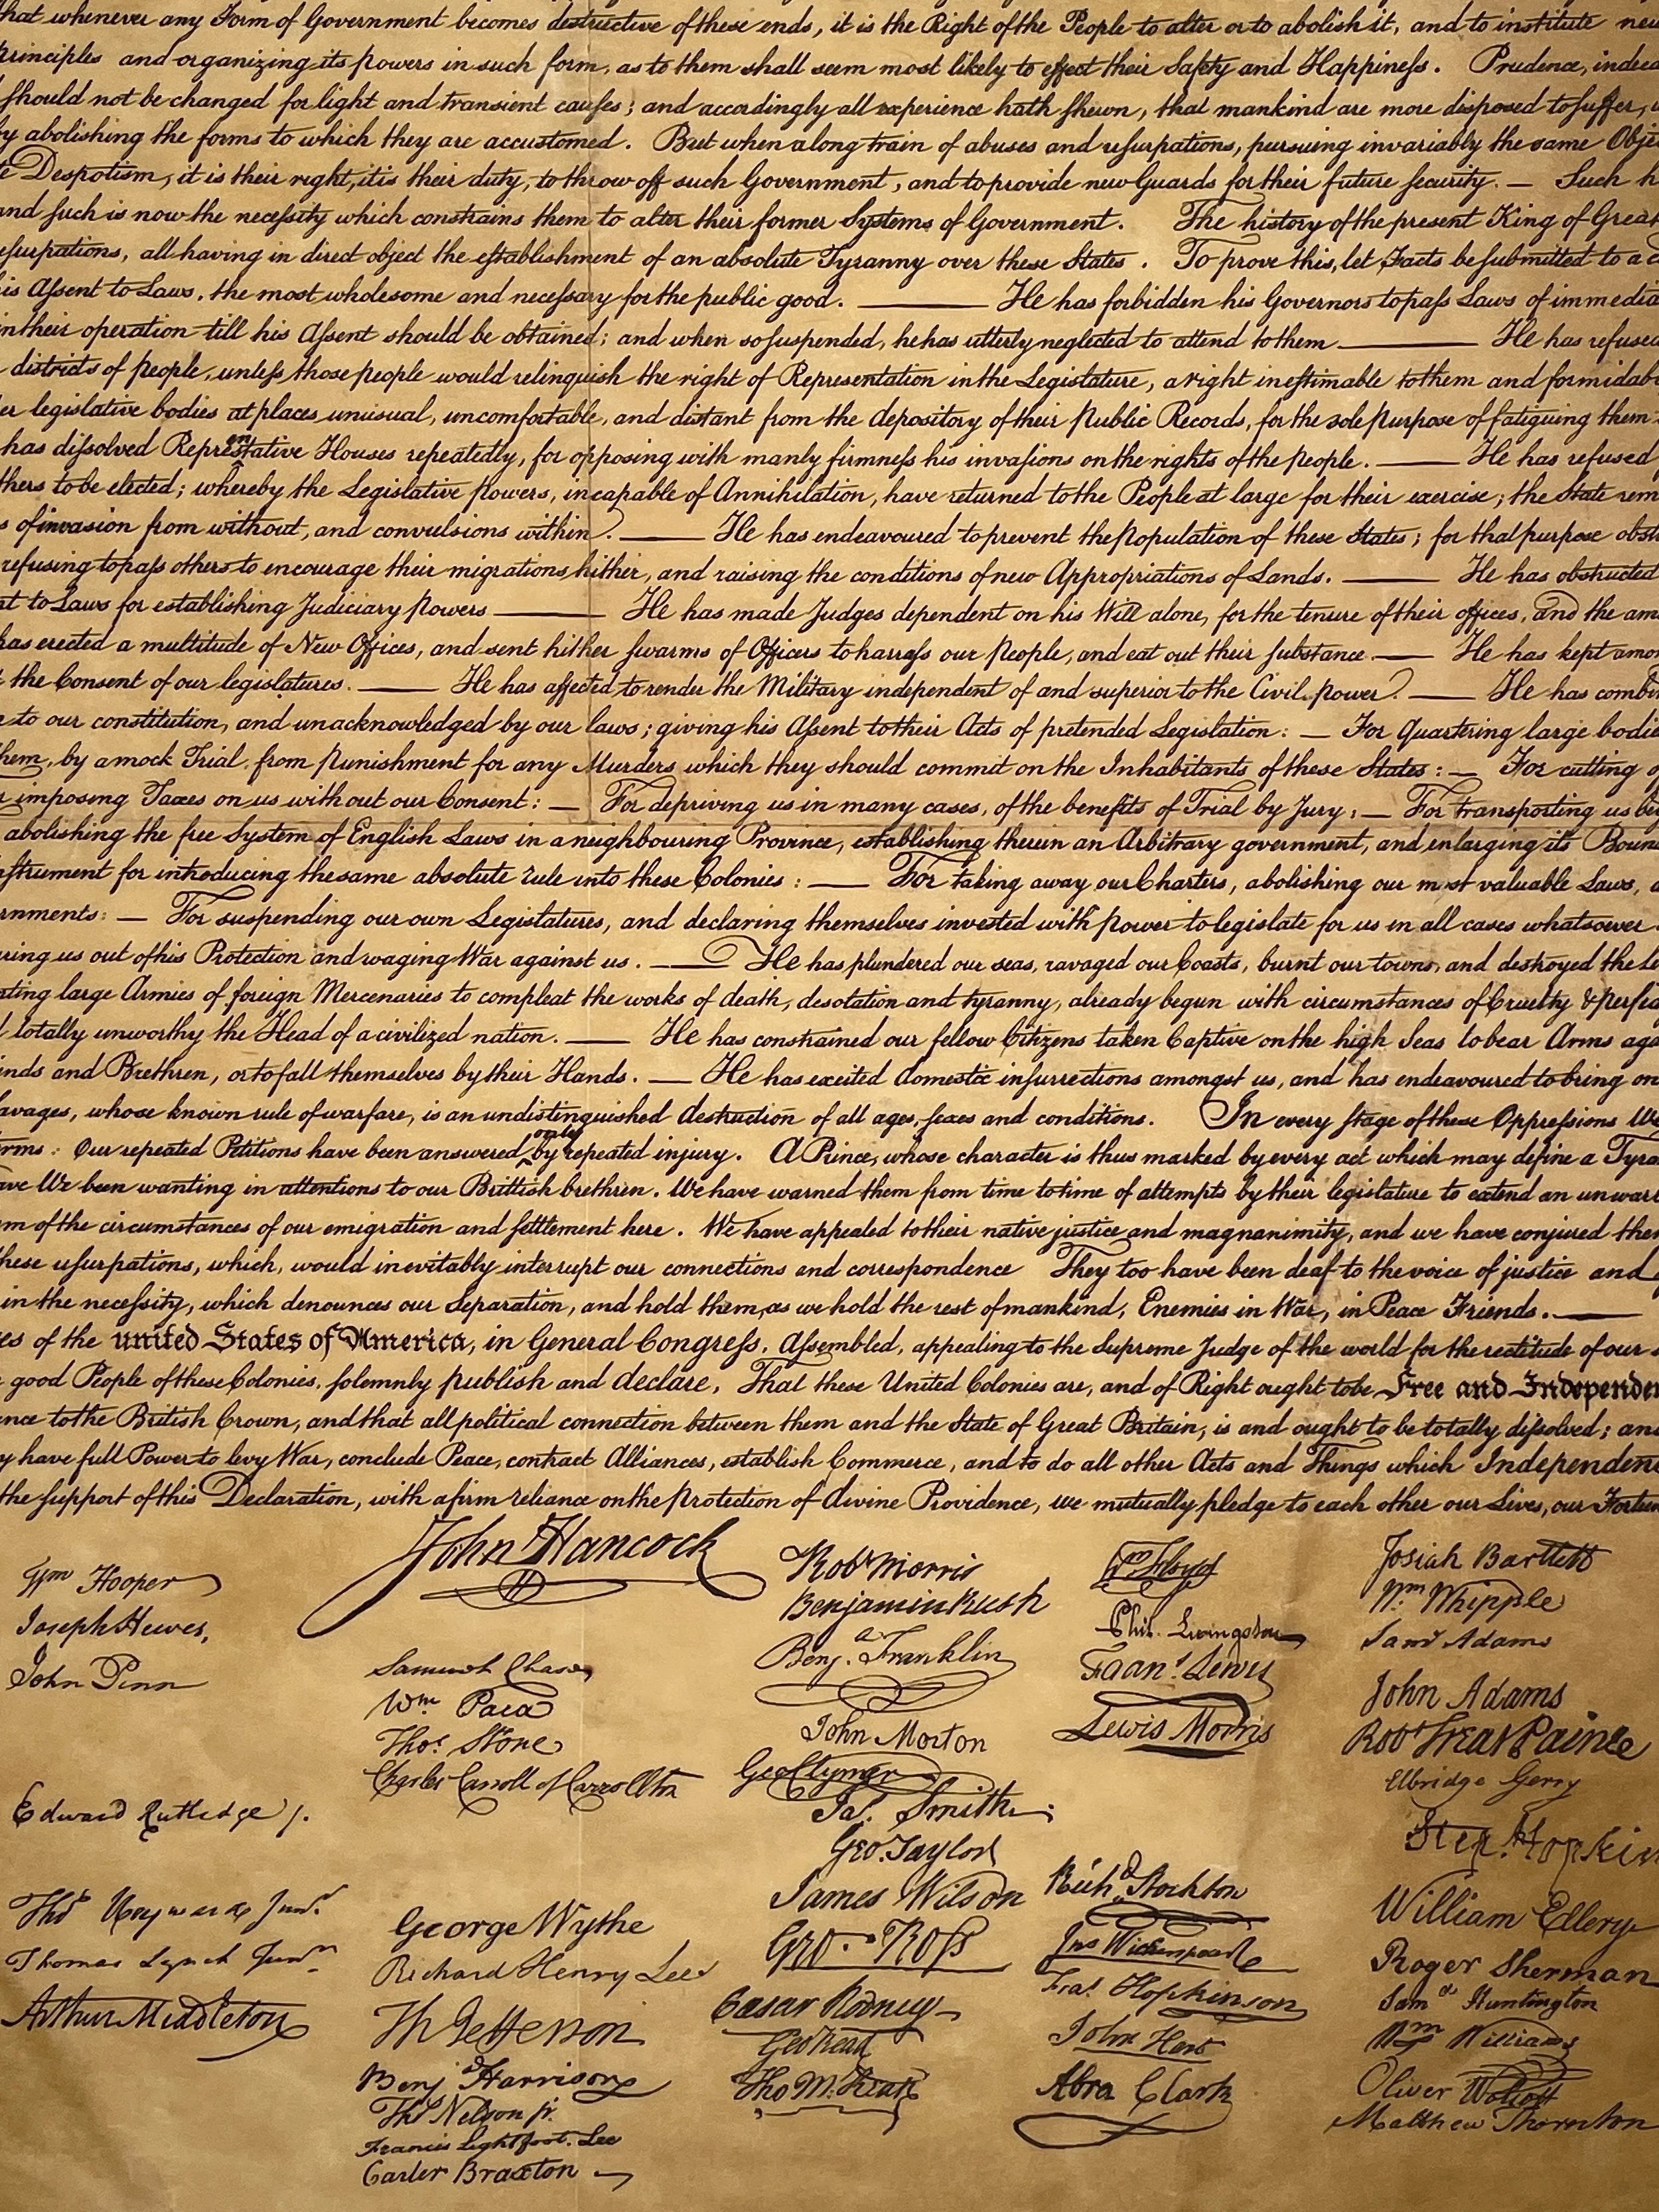 that whenever any Form of Government becomes destructive of these ends, it is the Right of the People to alter or to abolish it, and to institute new
principles and organizing its powers in such form, as to them shall seem most likely to effect their Safety and Happiness. Prudence, indeed
should not be changed for light and transient causes; and accordingly all experience hath shewn, that mankind are more disposed to suffer,
by abolishing the forms to which they are accustomed. But when a long train of abuses and usurpations, pursuing invariably the same Obje
te Despotism, it is their right, it is their duty, to throw off such Government, and to provide new Guards for their future security. — Such h
and such is now the necessity which constrains them to alter their former Systems of Government. The history of the present King of Great
usurpations, all having in direct object the establishment of an absolute Tyranny over these States. To prove this, let Facts be submitted to a c
is Assent to Laws, the most wholesome and necessary for the public good. — He has forbidden his Governors to pass Laws of immedia
in their operation till his Assent should be obtained; and when so suspended, he has utterly neglected to attend to them — He has refused
districts of people, unless those people would relinquish the right of Representation in the Legislature, a right inestimable to them and formidab
er legislative bodies at places unusual, uncomfortable, and distant from the depository of their public Records, for the sole purpose of fatiguing them
has dissolved Representative Houses repeatedly, for opposing with manly firmness his invasions on the rights of the people. — He has refused
thers to be elected; whereby the Legislative powers, incapable of Annihilation, have returned to the People at large for their exercise; the State rem
s of invasion from without, and convulsions within. — He has endeavoured to prevent the population of these States; for that purpose obst
refusing to pass others to encourage their migrations hither, and raising the conditions of new Appropriations of Lands. — He has obstructed
nt to Laws for establishing Judiciary powers — He has made Judges dependent on his Will alone, for the tenure of their offices, and the am
has erected a multitude of New Offices, and sent hither swarms of Officers to harrass our people, and eat out their substance. — He has kept amon
t the Consent of our legislatures. — He has affected to render the Military independent of and superior to the Civil power. — He has combi
n to our constitution, and unacknowledged by our laws; giving his Assent to their Acts of pretended Legislation: — For Quartering large bodie
them, by a mock Trial, from punishment for any Murders which they should commit on the Inhabitants of these States: — For cutting o
r imposing Taxes on us without our Consent: — For depriving us in many cases, of the benefits of Trial by Jury: — For transporting us bey
abolishing the free System of English Laws in a neighbouring Province, establishing therein an Arbitrary government, and enlarging its Boun
nstrument for introducing the same absolute rule into these Colonies: — For taking away our Charters, abolishing our most valuable Laws, a
rnments: — For suspending our own Legislatures, and declaring themselves invested with power to legislate for us in all cases whatsoever.
ring us out of his Protection and waging War against us. — He has plundered our seas, ravaged our Coasts, burnt our towns, and destroyed the li
rting large Armies of foreign Mercenaries to compleat the works of death, desolation and tyranny, already begun with circumstances of Cruelty & perfid
d totally unworthy the Head of a civilized nation. — He has constrained our fellow Citizens taken Captive on the high Seas to bear Arms aga
ends and Brethren, or to fall themselves by their Hands. — He has excited domestic insurrections amongst us, and has endeavoured to bring on
avages, whose known rule of warfare, is an undistinguished destruction of all ages, sexes and conditions. In every stage of these Oppressions We
rms: Our repeated Petitions have been answered only by repeated injury. A Prince, whose character is thus marked by every act which may define a Tyra
ave We been wanting in attentions to our Brittish brethren. We have warned them from time to time of attempts by their legislature to extend an unwarr
m of the circumstances of our emigration and settlement here. We have appealed to their native justice and magnanimity, and we have conjured them
these usurpations, which, would inevitably interrupt our connections and correspondence They too have been deaf to the voice of justice and
in the necessity, which denounces our Separation, and hold them, as we hold the rest of mankind, Enemies in War, in Peace Friends. —
es of the united States of America, in General Congress, Assembled, appealing to the Supreme Judge of the world for the rectitude of our
good People of these Colonies, solemnly publish and declare, That these United Colonies are, and of Right ought to be Free and Independen
nce to the British Crown, and that all political connection between them and the State of Great Britain, is and ought to be totally dissolved; and
y have full Power to levy War, conclude Peace, contract Alliances, establish Commerce, and to do all other Acts and Things which Independent
the support of this Declaration, with a firm reliance on the protection of divine Providence, we mutually pledge to each other our Lives, our Fortun
Wm Hooper
Joseph Hewes,
John Penn
Edward Rutledge /.
Thos Heyward Junr.
Thomas Lynch Junr.
Arthur Middleton
John Hancock
Samuel Chase
Wm. Paca
Thos. Stone
Charles Carroll of Carrollton
George Wythe
Richard Henry Lee
Th Jefferson
Benj Harrison
Thos Nelson jr.
Francis Lightfoot Lee
Carter Braxton
Robt Morris
Benjamin Rush
Benja. Franklin
John Morton
Geo Clymer
Jas. Smith
Geo. Taylor
James Wilson
Geo. Ross
Caesar Rodney
Geo Read
Tho M:Kean
Wm Floyd
Phil. Livingston
Frans. Lewis
Lewis Morris
Richd. Stockton
Jno Witherspoon
Fras. Hopkinson
John Hart
Abra Clark
Josiah Bartlett
Wm. Whipple
Saml Adams
John Adams
Robt Treat Paine
Elbridge Gerry
Step. Hopkin
William Ellery
Roger Sherman
Samel Huntington
Wm Williams
Oliver Wolcott
Matthew Thornton